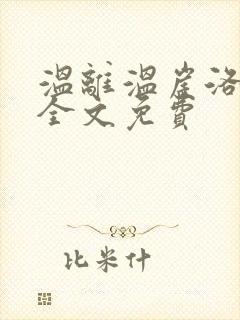 溫離溫崖洛
全文免費
比米什